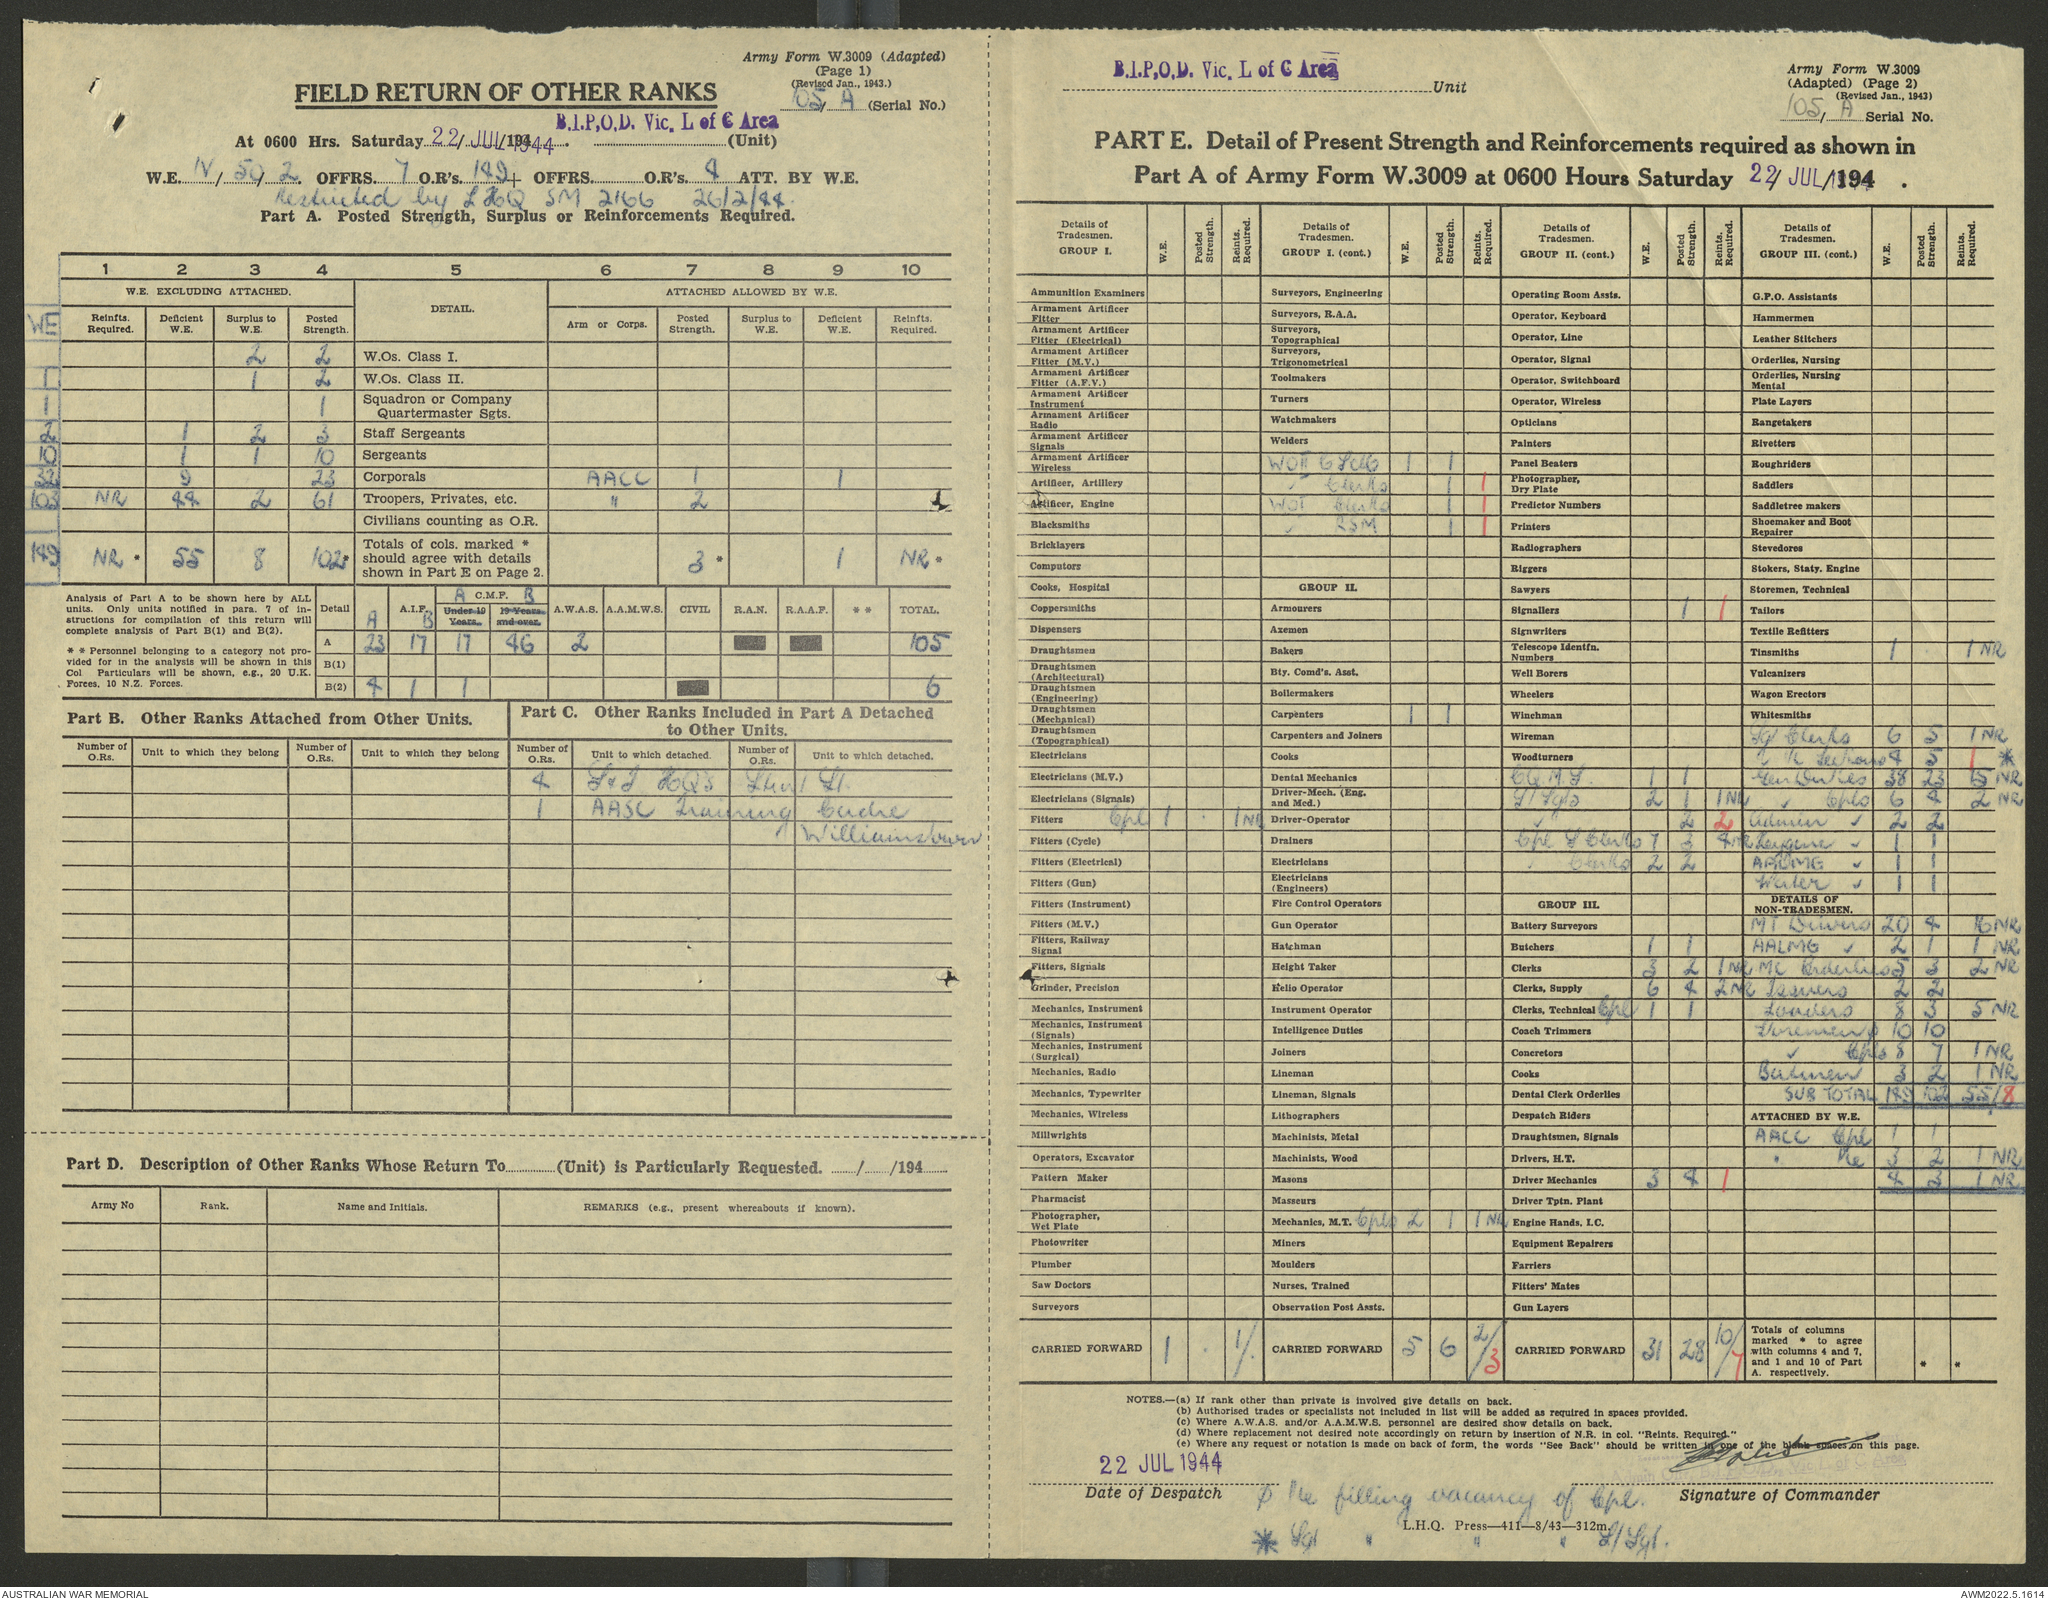 Army Form W.3009 (Adapted)
(Page 1)
(Revised Jan., 1943.)
FIELD RETURN OF OTHER RANKS
105/ A (Serial No.)
B.I.P.O.D. Vic. L of C Area
At 0600 Hrs. Saturday 22/ JUL /1944. (Unit)
W.E. IV / 50 / 2. OFFRS. 7 O.R's. 149 + OFFRS. O.R's. 4 ATT. BY W.E.
Restricted by LHQ SM 2166 26/2/44.
Part A. Posted Strength, Surplus or Reinforcements Required.
1 2 3 4 5 6 7 8 9 10
W.E. EXCLUDING ATTACHED. DETAIL. ATTACHED ALLOWED BY W.E.
WE Reinfts. Required. Deficient W.E. Surplus to W.E. Posted Strength. Arm or Corps. Posted Strength. Surplus to W.E. Deficient W.E. Reinfts. Required.
2 2 W.Os. Class I.
1 1 2 W.Os. Class II.
1 1 Squadron or Company Quartermaster Sgts.
2 1 2 3 Staff Sergeants
10 1 1 10 Sergeants
32 9 23 Corporals AACC 1 1
103 NR 44 2 61 Troopers, Privates, etc. " 2
Civilians counting as O.R.
149 NR * 55 8 102* Totals of cols. marked * should agree with details shown in Part E on Page 2. 3 * 1 NR *
Analysis of Part A to be shown here by ALL units. Only units notified in para. 7 of instructions for compilation of this return will complete analysis of Part B(1) and B(2).
* * Personnel belonging to a category not provided for in the analysis will be shown in this Col Particulars will be shown, e.g., 20 U.K. Forces, 10 N.Z. Forces.
Detail A A.I.F. B A C.M.F. B Under 19 Years. 19 Years and over. A.W.A.S. A.A.M.W.S. CIVIL R.A.N. R.A.A.F. * * TOTAL.
A 23 17 17 46 2 105
B(1)
B(2) 4 1 1 6
Part B. Other Ranks Attached from Other Units.
Part C. Other Ranks Included in Part A Detached to Other Units.
Number of O.Rs. Unit to which they belong Number of O.Rs. Unit to which they belong Number of O.Rs. Unit to which detached. Number of O.Rs. Unit to which detached.
4 S & T HQ's
1 AASC Training Cadre
Williamstown
Part D. Description of Other Ranks Whose Return To (Unit) is Particularly Requested. / /194
Army No Rank. Name and Initials. REMARKS (e.g., present whereabouts if known).
B.I.P.O.D. Vic. L of C Area Unit
Army Form W.3009
(Adapted) (Page 2)
(Revised Jan., 1943)
105/ A Serial No.
PART E. Detail of Present Strength and Reinforcements required as shown in
Part A of Army Form W.3009 at 0600 Hours Saturday 22/ JUL /1944 .
Details of Tradesmen. GROUP I. W.E. Posted Strength. Reints. Required.
Ammunition Examiners
Armament Artificer Fitter
Armament Artificer Fitter (Electrical)
Armament Artificer Fitter (M.V.)
Armament Artificer Fitter (A.F.V.)
Armament Artificer Instrument
Armament Artificer Radio
Armament Artificer Signals
Armament Artificer Wireless
Artificer, Artillery
Artificer, Engine
Blacksmiths
Bricklayers
Computors
Cooks, Hospital
Coppersmiths
Dispensers
Draughtsmen
Draughtsmen (Architectural)
Draughtsmen (Engineering)
Draughtsmen (Mechanical)
Draughtsmen (Topographical)
Electricians
Electricians (M.V.)
Electricians (Signals)
Fitters Cpl 1 . 1 NR
Fitters (Cycle)
Fitters (Electrical)
Fitters (Gun)
Fitters (Instrument)
Fitters (M.V.)
Fitters, Railway Signal
Fitters, Signals
Grinder, Precision
Mechanics, Instrument
Mechanics, Instrument (Signals)
Mechanics, Instrument (Surgical)
Mechanics, Radio
Mechanics, Typewriter
Mechanics, Wireless
Millwrights
Operators, Excavator
Pattern Maker
Pharmacist
Photographer, Wet Plate
Photowriter
Plumber
Saw Doctors
Surveyors
CARRIED FORWARD 1 . 1/.
Details of Tradesmen. GROUP I. (cont.) W.E. Posted Strength. Reints. Required.
Surveyors, Engineering
Surveyors, R.A.A.
Surveyors, Topographical
Surveyors, Trigonometrical
Toolmakers
Turners
Watchmakers
Welders
WOII 1 1
" Clerks 1 1
WOI Clerks 1 1
" RSM 1 1
GROUP II.
Armourers
Axemen
Bakers
Bty. Comd's. Asst.
Boilermakers
Carpenters 1 1
Carpenters and Joiners
Cooks
Dental Mechanics
Driver-Mech. (Eng. and Med.)
Driver-Operator
Drainers
Electricians
Electricians (Engineers)
Fire Control Operators
Gun Operator
Hatchman
Height Taker
Helio Operator
Instrument Operator
Intelligence Duties
Joiners
Lineman
Lineman, Signals
Lithographers
Machinists, Metal
Machinists, Wood
Masons
Masseurs
Mechanics, M.T. Cpls 2 1 1 NR
Miners
Moulders
Nurses, Trained
Observation Post Assts.
CARRIED FORWARD 5 6 2/3
Details of Tradesmen. GROUP II. (cont.) W.E. Posted Strength. Reints. Required.
Operating Room Assts.
Operator, Keyboard
Operator, Line
Operator, Signal
Operator, Switchboard
Operator, Wireless
Opticians
Painters
Panel Beaters
Photographer, Dry Plate
Predictor Numbers
Printers
Radiographers
Riggers
Sawyers
Signallers 1 1
Signwriters
Telescope Identfn. Numbers
Well Borers
Wheelers
Winchman
Wireman
Woodturners
CQ.M.S. 1 1
S/Sgts 2 1 1 NR
2 2
Cpl S Clerks 7 3 4 NR
" Clerks 2 2
GROUP III.
Battery Surveyors
Butchers 1 1
Clerks 3 2 1 NR
Clerks, Supply 6 4 2 NR
Clerks, Technical Cpl 1 1
Coach Trimmers
Concretors
Cooks
Dental Clerk Orderlies
Despatch Riders
Draughtsmen, Signals
Drivers, H.T.
Driver Mechanics 3 4 1
Driver Tptn. Plant
Engine Hands, I.C.
Equipment Repairers
Farriers
Fitters' Mates
Gun Layers
CARRIED FORWARD 31 28 10/7
Details of Tradesmen. GROUP III. (cont.) W.E. Posted Strength. Reints. Required.
G.P.O. Assistants
Hammermen
Leather Stitchers
Orderlies, Nursing
Orderlies, Nursing Mental
Plate Layers
Rangetakers
Rivetters
Roughriders
Saddlers
Saddletree makers
Shoemaker and Boot Repairer
Stevedores
Stokers, Staty. Engine
Storemen, Technical
Tailors
Textile Refitters
Tinsmiths 1 1 NR
Vulcanizers
Wagon Erectors
Whitesmiths
Sgt Clerks 6 5 1 NR
4 5 1 *
Gen Duties 38 23 15 NR
" Cpls 6 4 2 NR
Admin " 2 2
Hygiene " 1 1
AALMG " 1 1
Water " 1 1
DETAILS OF NON-TRADESMEN.
MT Drivers 20 4 16 NR
AALMG " 2 1 1 NR
MC Orderlies 5 3 2 NR
Issuers 2 2
Loaders 8 3 5 NR
Storemen ø 10 10
" Cpls 8 7 1 NR
Batmen 3 2 1 NR
SUB TOTAL 149 102 55/8
ATTACHED BY W.E.
AACC Cpl 1 1
" Pte 3 2 1 NR
4 3 1 NR
Totals of columns marked * to agree with columns 4 and 7, and 1 and 10 of Part A. respectively. * *
NOTES.—(a) If rank other than private is involved give details on back.
(b) Authorised trades or specialists not included in list will be added as required in spaces provided.
(c) Where A.W.A.S. and/or A.A.M.W.S. personnel are desired show details on back.
(d) Where replacement not desired note accordingly on return by insertion of N.R. in col. "Reints. Required."
(e) Where any request or notation is made on back of form, the words "See Back" should be written in one of the blank spaces on this page.
22 JUL 1944
Date of Despatch
Signature of Commander
ø Pte filling vacancy of Cpl.
L.H.Q. Press—411—8/43—312m.
* Sgt " " " S/Sgt.
AUSTRALIAN WAR MEMORIAL
AWM2022.5.1614